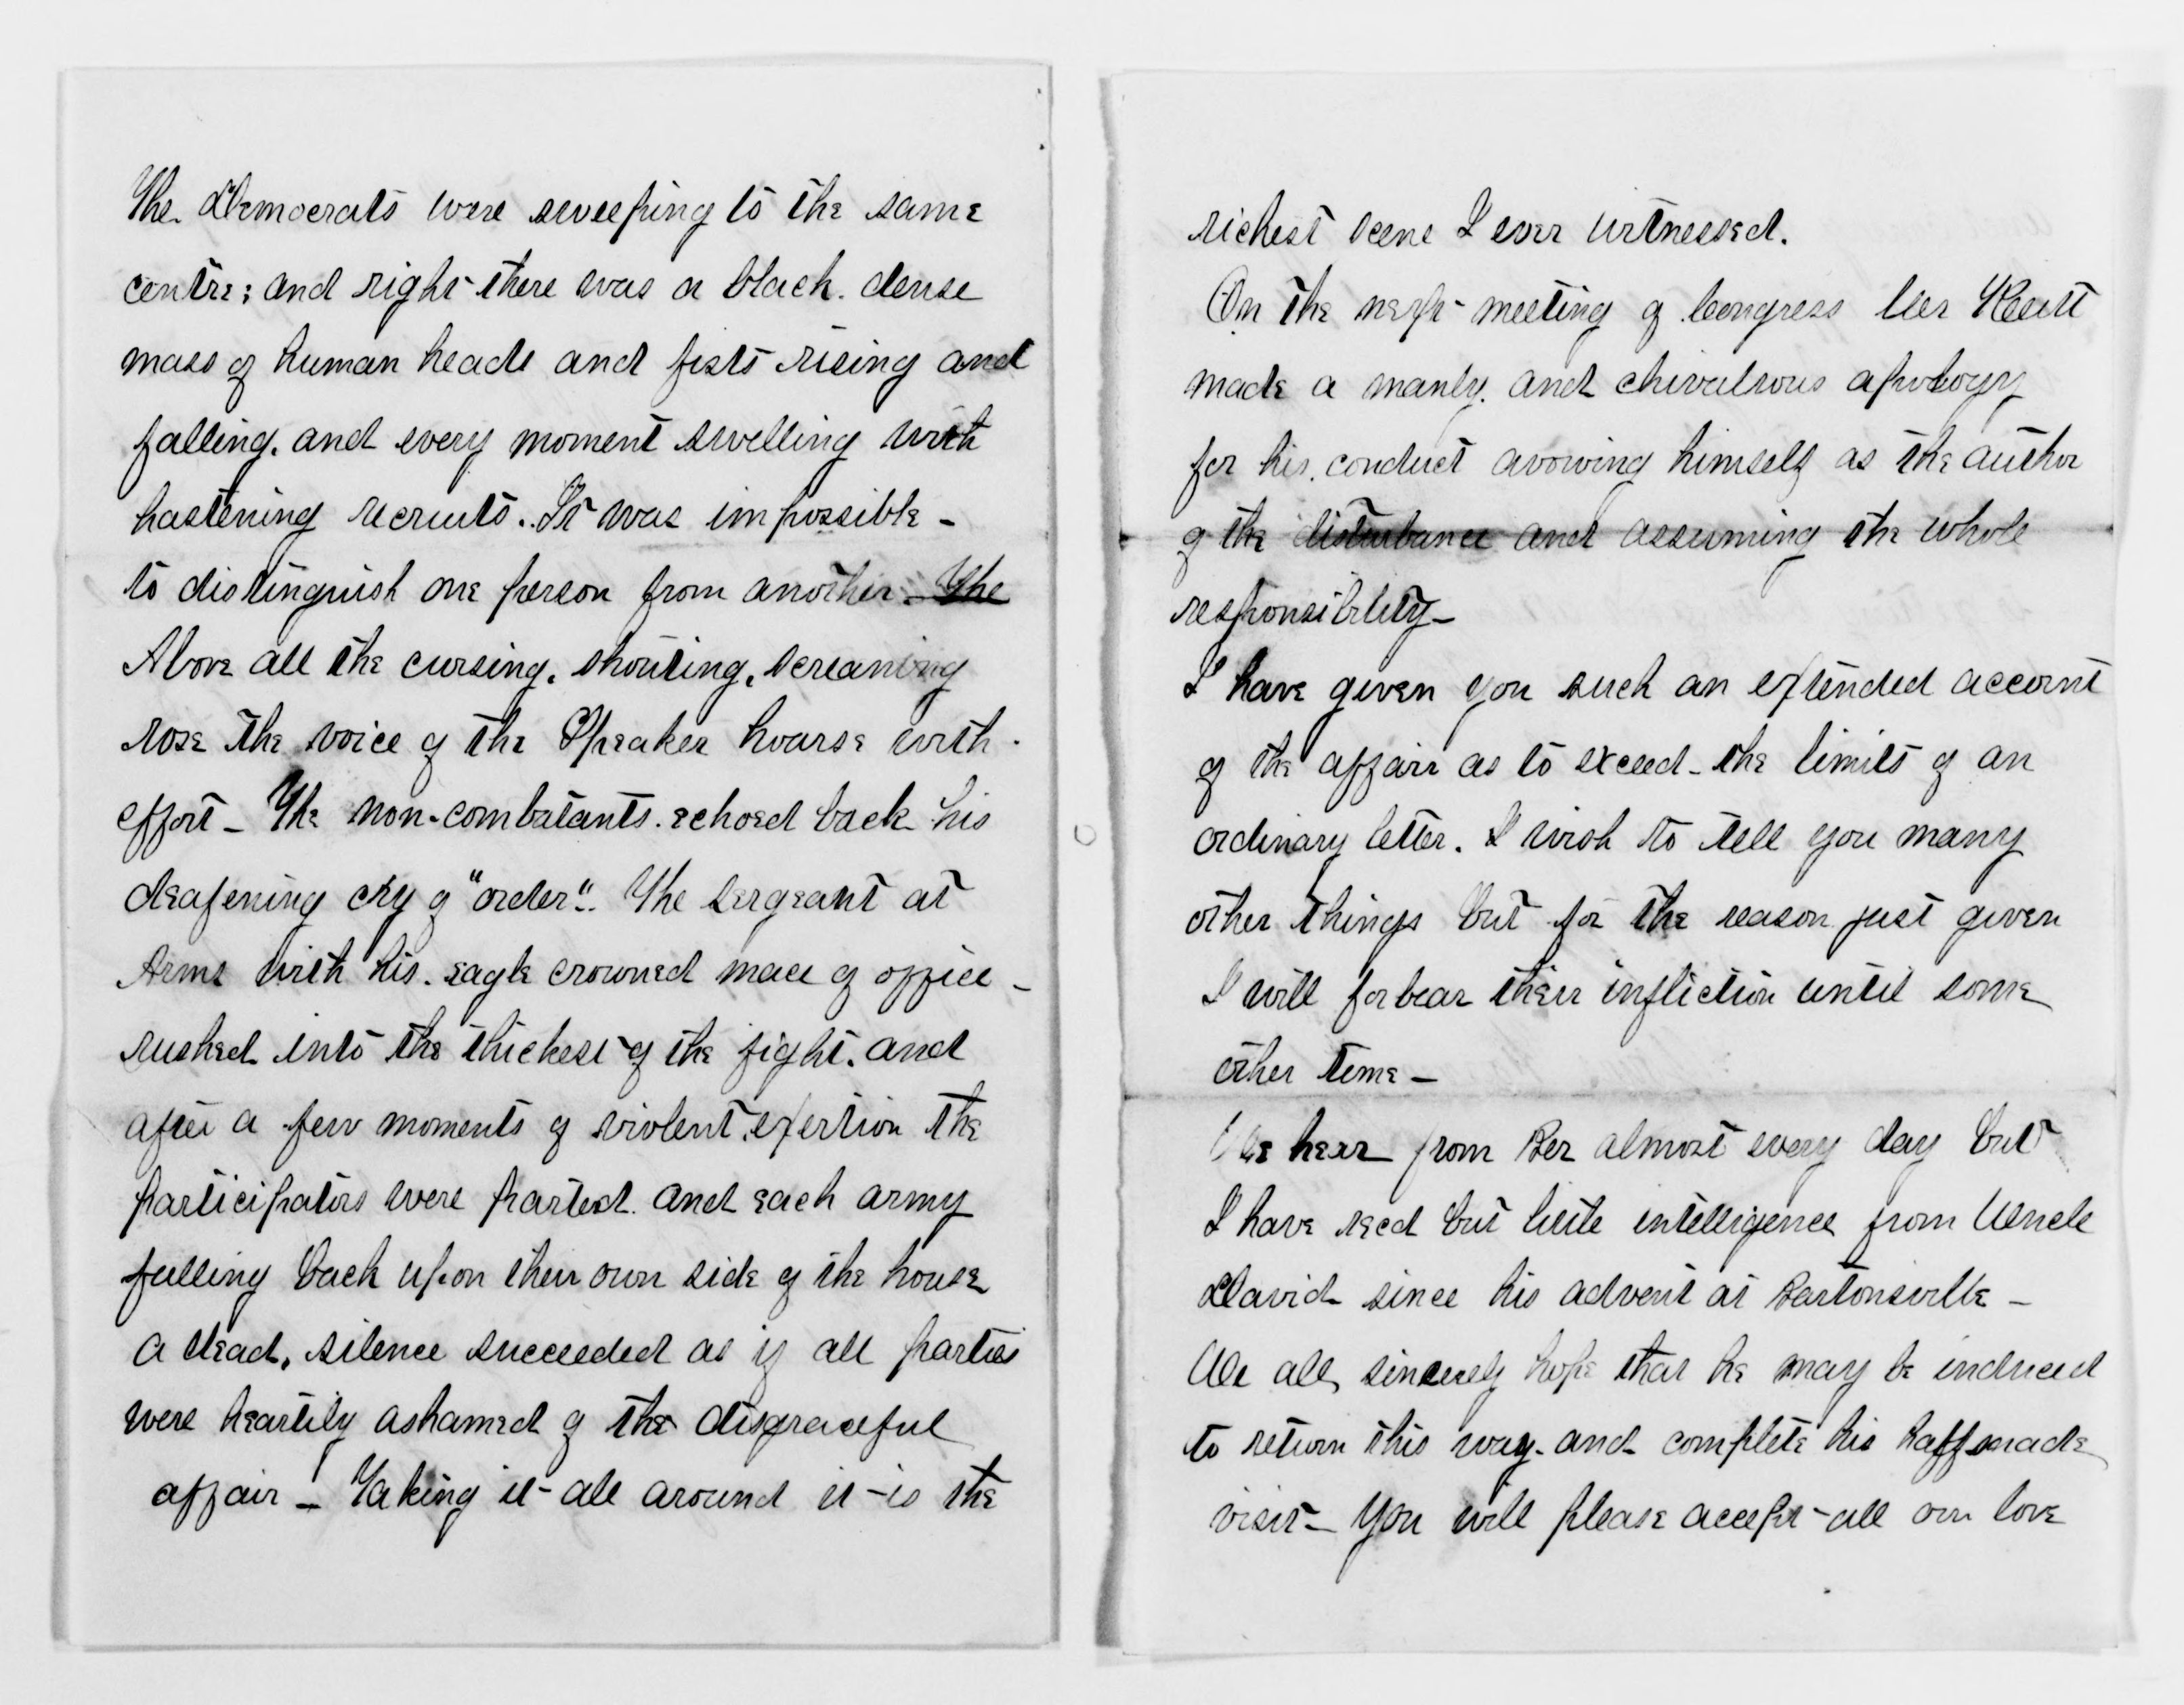 The Democrats were sweeping to the same
centre; and right there was a black. dense
mass of human heads and fists rising and
falling. and every moment swelling with
hastening recruits. It was impossible -
to distinguish one person from another. The
Above all the cursing, shouting, screaming
rose the voice of the Speaker hoarse with
effort - The non-combatants. echoed back his
deafening cry of "order". The Sergeant at
Arms with his. eagle crowned mace of office -
rushed into the thickest of the fight. and
after a few moments of violent exertion the
participators were parted. and each army
falling back upon their own side of the house
a dead, silence succeeded as if all parties
were heartily ashamed of the disgraceful
affair - Taking it all around it is the
richest scene I ever witnessed.
On the next meeting of Congress Mr Keitt
made a manly. and chivalrous apology
for his. conduct avowing himself as the author
of the disturbance and assuming the whole
responsibility -
I have given you such an extended account
of the affair as to exceed the limits of an
ordinary letter. I wish to tell you many
other things but for the reason just given
I will forbear their infliction until some
other time -
We hear from Ber almost every day but
I have recd but little intelligence from Uncle
David since his advent at Bartonsville -
We all, sincerely hope that he may be induced
to return this way. and complete his half made
visit - You will please accept all our love